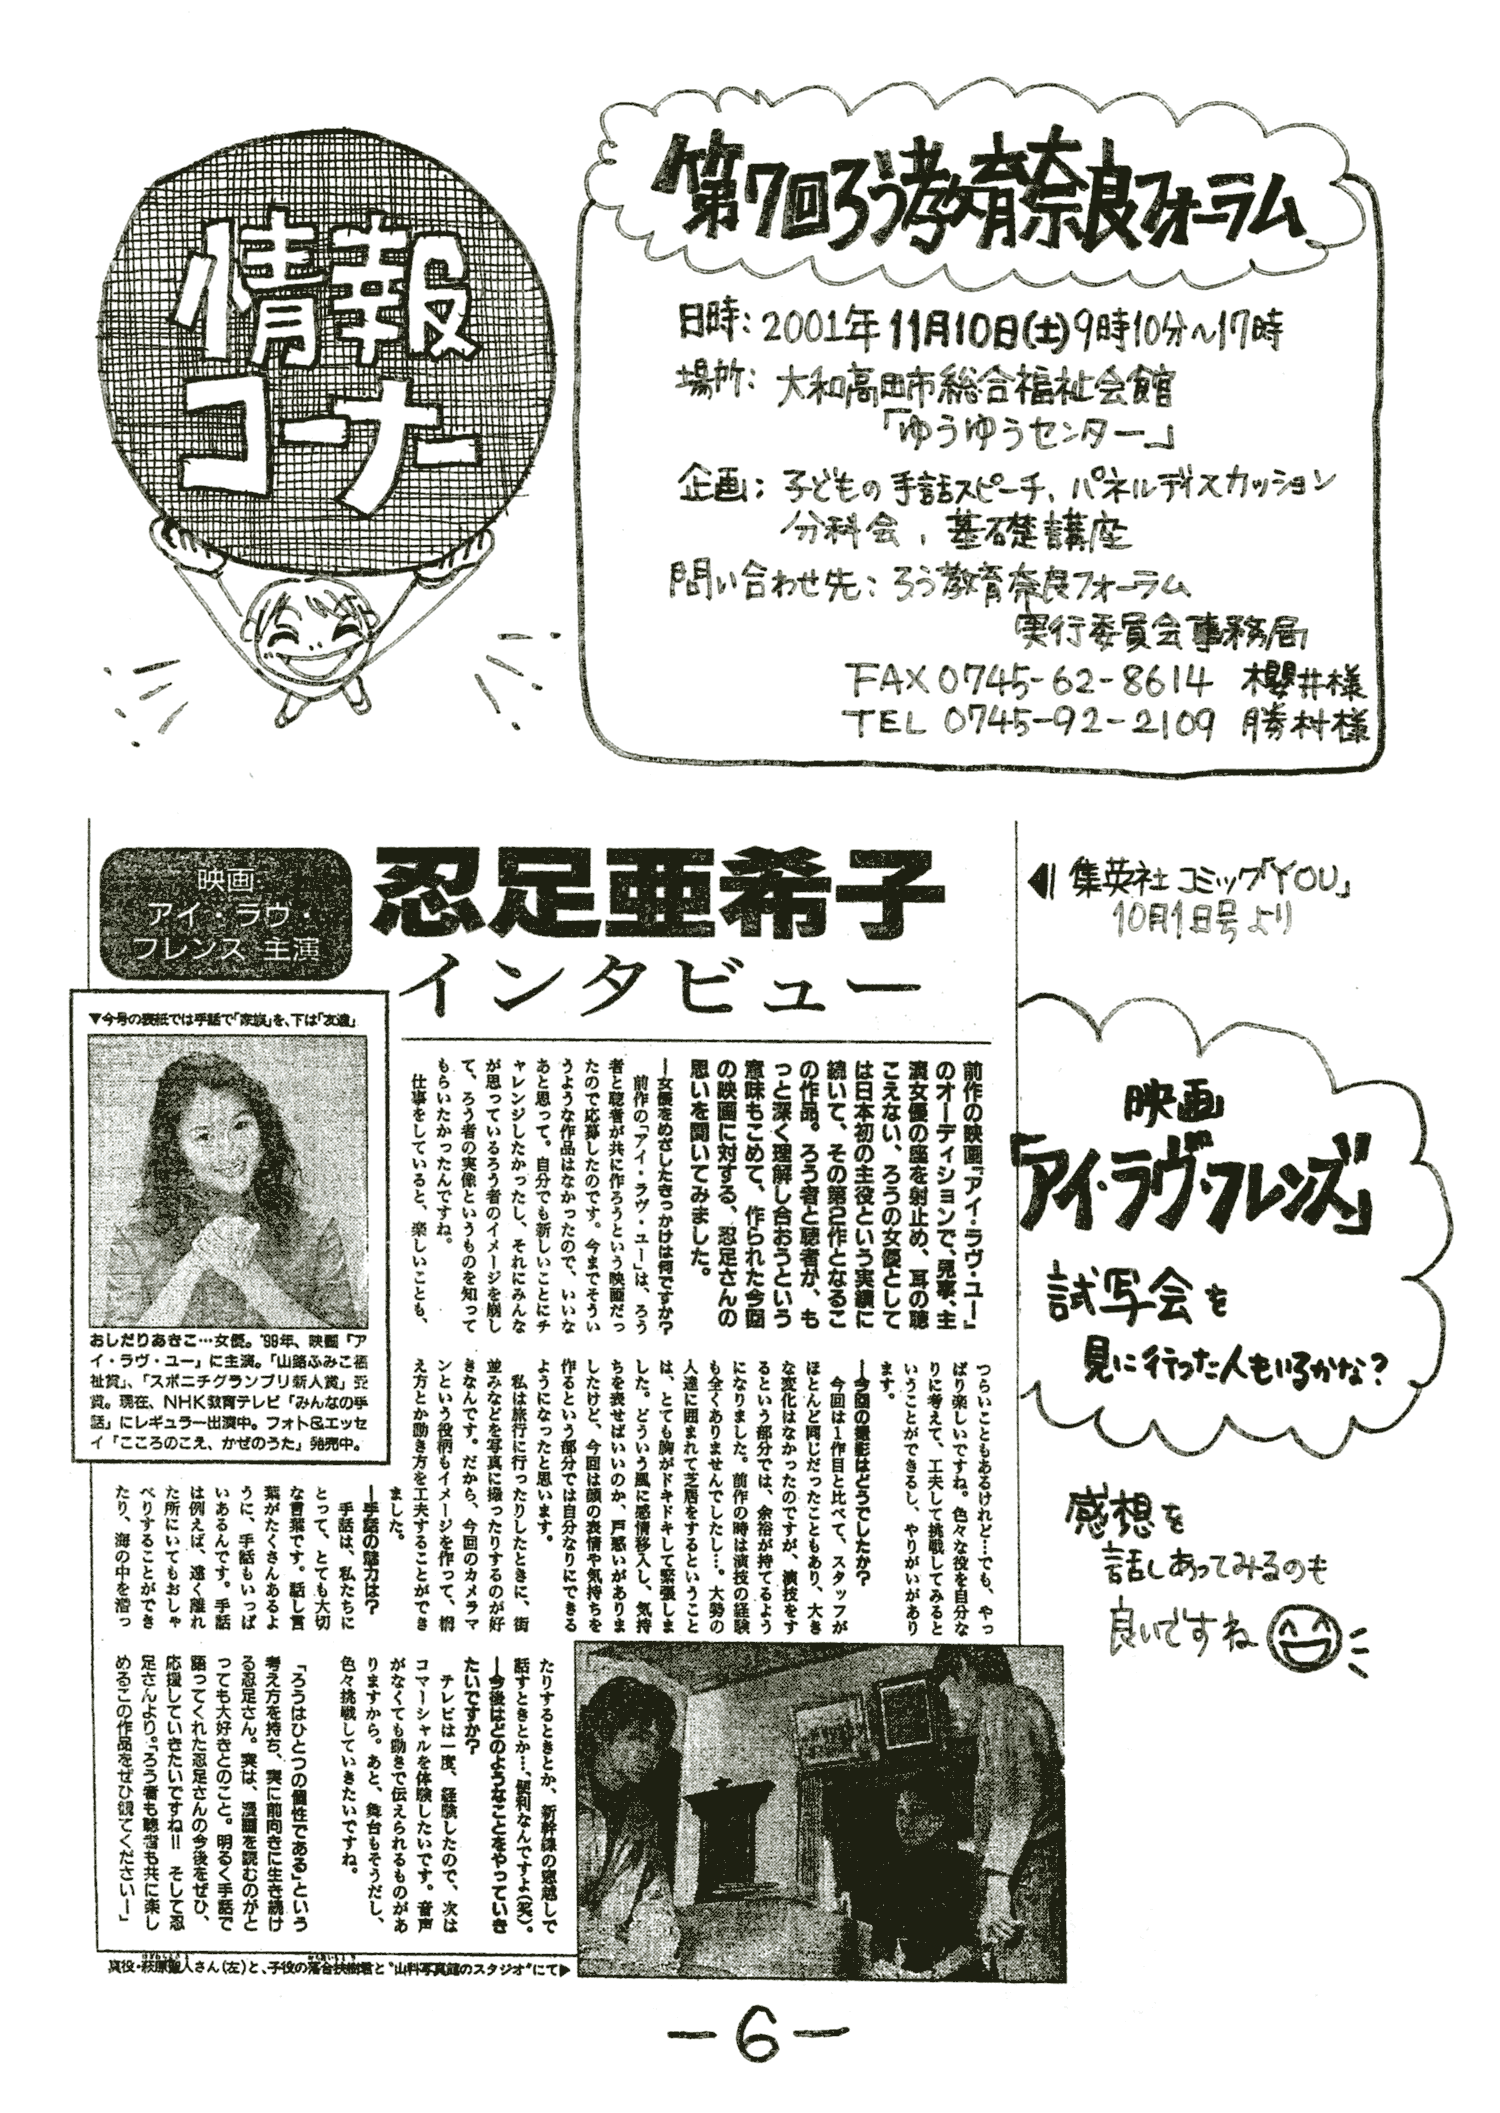 情報
コーナー
第7回ろう教育奈良フォーラム
日時：2001年11月10日(土)9時10分〜17時
場所：大和高田市総合福祉会館
「ゆうゆうセンター」
企画：子どもの手話スピーチ、パネルディスカッション
分科会、基礎講座
問い合わせ先：ろう教育奈良フォーラム
実行委員会事務局
FAX 0745-62-8614 櫻井様
TEL 0745-92-2109 勝村様
映画
アイ・ラヴ・
フレンズ 主演
忍足亜希子
インタビュー
▼今号の表紙では手話で「家族」を、下は「友達」
おしだりあきこ…女優。'99年、映画「ア
イ・ラヴ・ユー」に主演。「山路ふみこ福
祉賞」、「スポニチグランプリ新人賞」受
賞。現在、NHK教育テレビ「みんなの手
話」にレギュラー出演中。フォト&エッセ
イ「こころのこえ、かぜのうた」発売中。
前作の映画『アイ・ラヴ・ユー』
のオーディションで、見事、主
演女優の座を射止め、耳の聴
こえない、ろうの女優として
は日本初の主役という実績に
続いて、その第2作となるこ
の作品。ろう者と聴者が、も
っと深く理解し合おうという
意味もこめて、作られた今回
の映画に対する、忍足さんの
思いを聞いてみました。
―女優をめざしたきっかけは何ですか？
前作の「アイ・ラヴ・ユー」は、ろう
者と聴者が共に作ろうという映画だっ
たので応募したのです。今までそうい
うような作品はなかったので、いいな
あと思って。自分でも新しいことにチ
ャレンジしたかったし、それにみんな
が思っているろう者のイメージを崩し
て、ろう者の実像というものを知って
もらいたかったんですね。
仕事をしていると、楽しいことも、
つらいこともあるけれど…でも、やっ
ぱり楽しいですね。色々な役を自分な
りに考えて、工夫して挑戦してみると
いうことができるし、やりがいがあり
ます。
―今回の撮影はどうでしたか？
今回は1作目と比べて、スタッフが
ほとんど同じだったこともあり、大き
な変化はなかったのですが、演技をす
るという部分では、余裕が持てるよう
になりました。前作の時は演技の経験
も全くありませんでしたし…。大勢の
人達に囲まれて芝居をするということ
は、とても胸がドキドキして緊張しま
した。どういう風に感情移入し、気持
ちを表せばいいのか、戸惑いがありま
したけど、今回は顔の表情や気持ちを
作るという部分では自分なりにできる
ようになったと思います。
私は旅行に行ったりしたときに、街
並みなどを写真に撮ったりするのが好
きなんです。だから、今回のカメラマ
ンという役柄もイメージを作って、構
え方とか動き方を工夫することができ
ました。
―手話の魅力は？
手話は、私たちに
とって、とても大切
な言葉です。話し言
葉がたくさんあるよ
うに、手話もいっぱ
いあるんです。手話
は例えば、遠く離れ
た所にいてもおしゃ
べりすることができ
たり、海の中を潜っ
たりするときとか、新幹線の窓越しで
話すときとか…、便利なんですよ(笑)。
―今後はどのようなことをやっていき
たいですか？
テレビは一度、経験したので、次は
コマーシャルを体験したいです。音声
がなくても動きで伝えられるものがあ
りますから。あと、舞台もそうだし、
色々挑戦していきたいですね。
「ろうはひとつの個性である」という
考え方を持ち、実に前向きに生き続け
る忍足さん。実は、漫画を読むのがと
っても大好きとのこと。明るく手話で
語ってくれた忍足さんの今後をぜひ、
応援していきたいですね!! そして忍
足さんより。「ろう者も聴者も共に楽し
めるこの作品をぜひ観てください！」
真役・萩原聖人さん(左)と、子役の落合扶樹君と“山科写真館のスタジオ”にて▶
◀集英社コミック「YOU」
10月1日号より
映画
「アイ・ラヴ・フレンズ」
試写会を
見に行った人もいるかな？
感想を
話しあってみるのも
良いですね
－6－